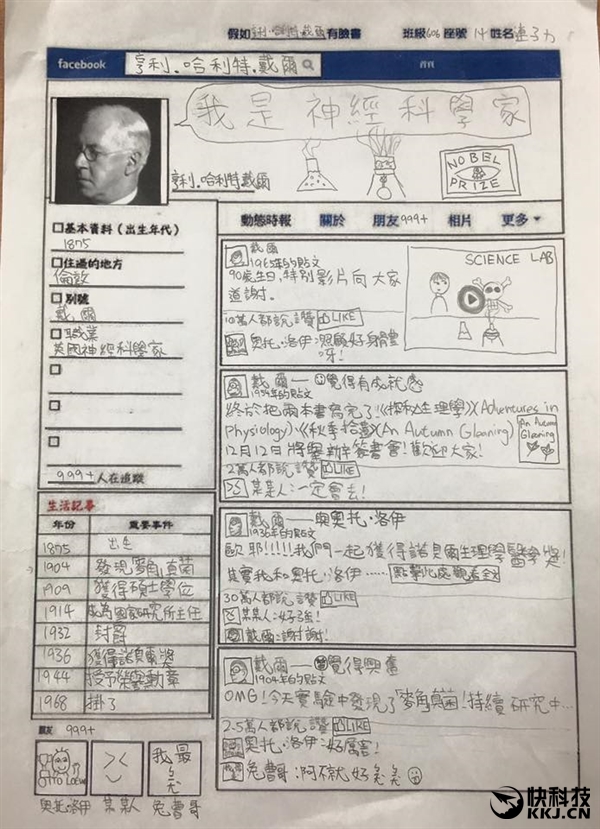 假如亨利.哈利特.戴爾有臉書 班級606座號14姓名連子力
facebook
亨利.哈利特.戴爾
我是神經科學家
亨利.哈利特戴爾
NOBEL
PRIZE
動態時報 關於 朋友999+ 相片 更多
基本資料(出生年代)
1875
住過的地方
倫敦
別號
戴爾
職業
英國神經科學家
999+人在追蹤
生活記事
年份 重要事件
1875 出生
1904 發現麥角真菌
1909 獲得碩士學位
1914 成為國家研究所主任
1932 封爵
1936 獲得諾貝爾獎
1944 授予榮譽勳章
1968 掛了
999+
OTTO LOEWI
我最
奧托.洛伊 某某人 兔曹哥
戴爾
1965年的貼文
90歲生日,特別影片向大家
道謝.
SCIENCE LAB
10萬人都說讚 LIKE
奧托.洛伊:照顧好身體
呀!
戴爾—覺得有成就感
1954年的貼文
終於把兩本書寫完了!《探秘生理學》(Adventures in
Physiology).《秋季拾萬》(An Autumn Gleaning)
An Autumn
Gleaning
12月12日將舉辦簽書會!歡迎大家!
2萬人都說讚 LIKE
某某人:一定會去!
戴爾—與奧托.洛伊
1936年的貼文
歐耶!!!!!我們一起獲得諾貝爾生理學醫學獎!
其實我和奧托.洛伊……點擊此處觀看全文
30萬人都說讚 LIKE
某某人:好強!
戴爾:謝謝!
戴爾—覺得興奮
1904年的貼文
OMG!今天實驗中發現了麥角真菌!持續研究中…
2.5萬人都說讚 LIKE
奧托.洛伊:好厲害!
兔曹哥:阿不就好棒棒
快科技
KKJ.CN